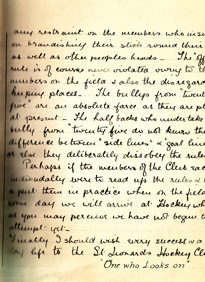 any restraint on the members who insist
on brandishing their stick round their
as well as other peoples heads - The "off
rule is of course never violated owing to th
numbers on the field & also the disregard
keeping places - The bullys from twenty
five" are an absolute farce as they are pl
at present - The half backs who undertake
bully from twenty five do not know the
difference between "side lines" & "goal line
or else they deliberately disobey the rules
Perhaps if the members of the Club
individually were to read up the rules &
& put them in practice when on the field
some day we will arrive at Hockey wh
as you may perceive we have not begun to
attempt yet -
Finally I should wish every success & a
long life to the St Leonards Hockey Cl
"One who Looks on"